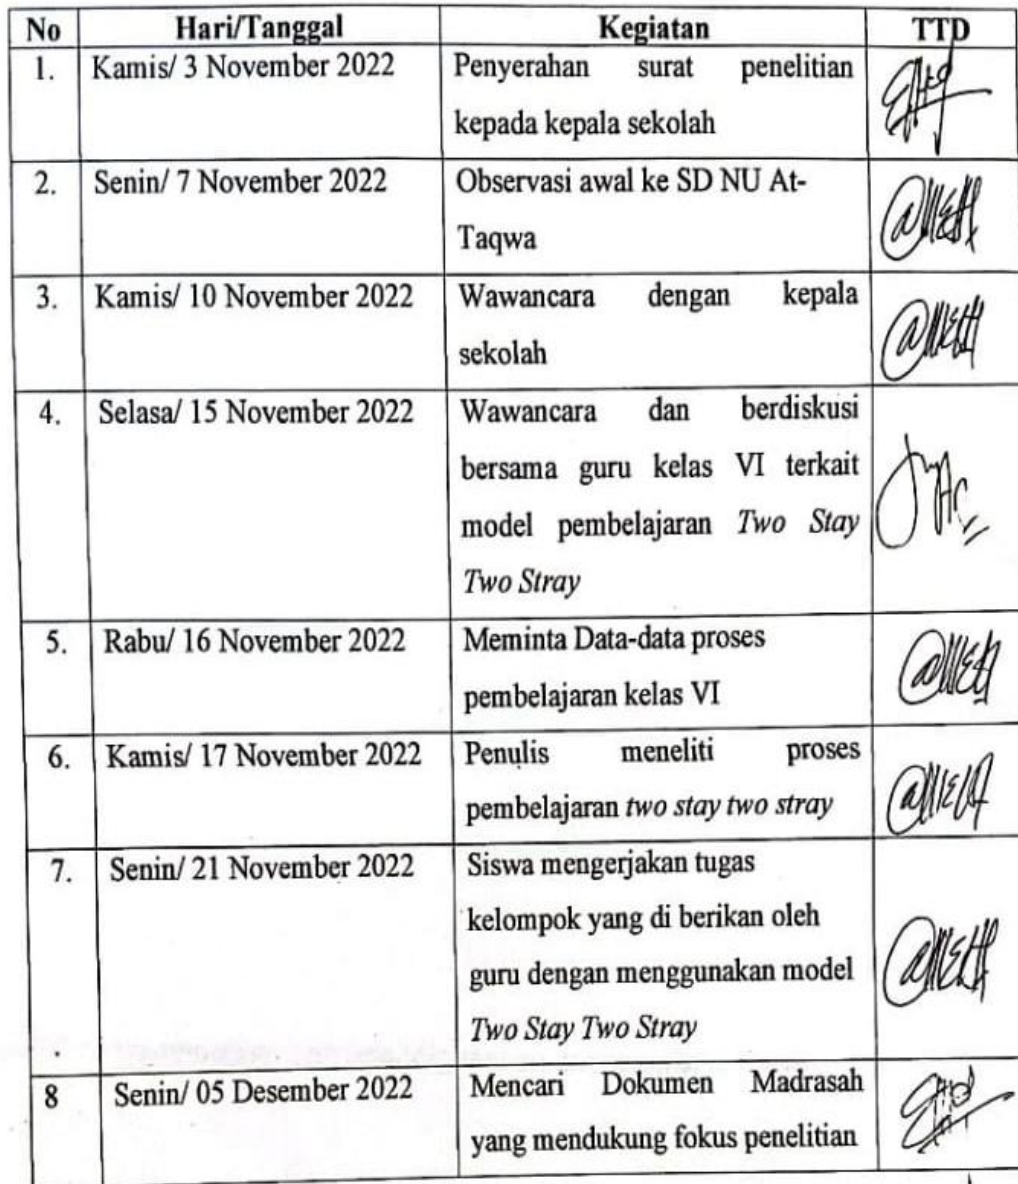 No Hari/Tanggal Kegiatan TTD
1. Kamis/ 3 November 2022 Penyerahan surat penelitian
kepada kepala sekolah
2. Senin/ 7 November 2022 Observasi awal ke SD NU At-
Taqwa
3. Kamis/ 10 November 2022 Wawancara dengan kepala
sekolah
4. Selasa/ 15 November 2022 Wawancara dan berdiskusi
bersama guru kelas VI terkait
model pembelajaran Two Stay
Two Stray
5. Rabu/ 16 November 2022 Meminta Data-data proses
pembelajaran kelas VI
6. Kamis/ 17 November 2022 Penulis meneliti proses
pembelajaran two stay two stray
7. Senin/ 21 November 2022 Siswa mengerjakan tugas
kelompok yang di berikan oleh
guru dengan menggunakan model
Two Stay Two Stray
8 Senin/ 05 Desember 2022 Mencari Dokumen Madrasah
yang mendukung fokus penelitian